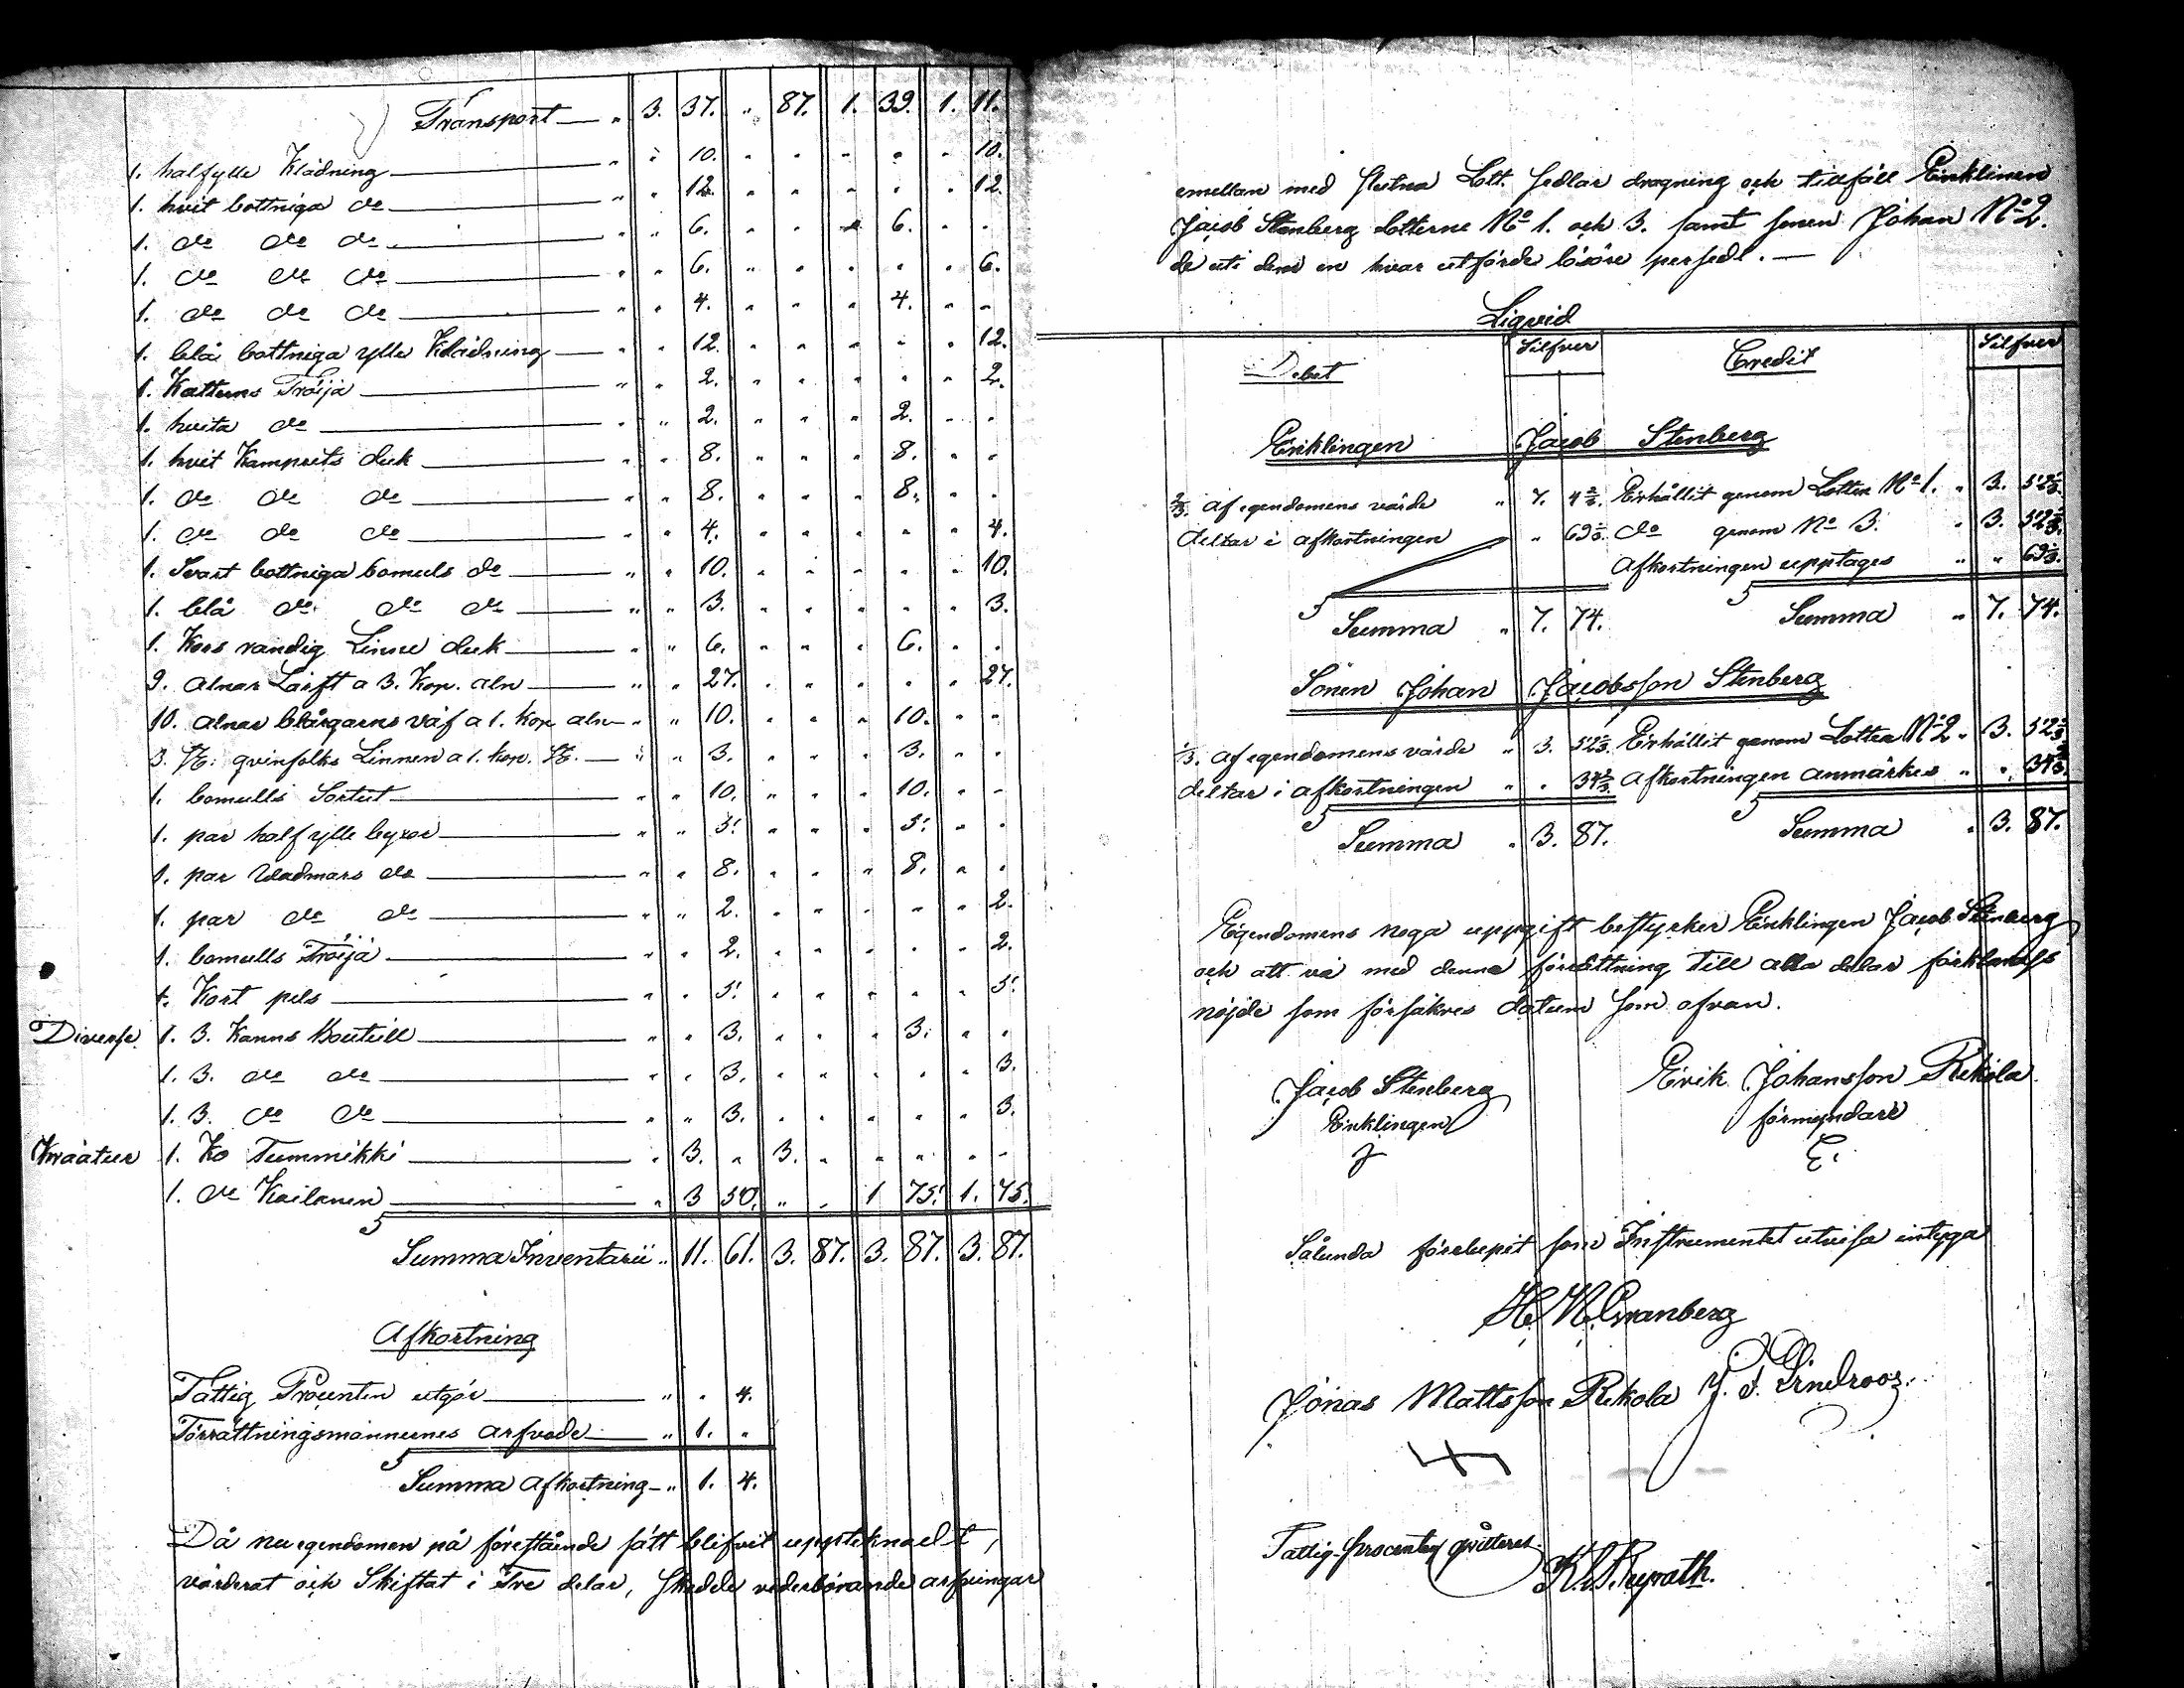 Transport — " 3. 37. " 87. 1. 39. 1. 11.
1. halfylle Klädning — " " 10. " " " " " 10.
1. hvit bottniga do — " " 12. " " " " " 12.
1. do do do — " " 6. " " " 6. " "
1. do do do — " " 6. " " " " " 6.
1. do do do — " " 4. " " " 4. " "
1. blå bottniga ylle Klädning — " " 12. " " " " " 12.
1. Kattuns Tröija — " " 2. " " " " " 2.
1. hvita do — " " 2. " " " 2. " "
1. hvit Kamprets duk — " " 8. " " " 8. " "
1. do do do — " " 8. " " " 8. " "
1. do do do — " " 4. " " " " " 4.
1. Svart bottniga bomuls do — " " 10. " " " " " 10.
1. blå do do do — " " 3. " " " " " 3.
1. Kors randig Linne duk — " " 6. " " " 6. " "
9. alnar Lärft a 3. Kop. aln — " " 27. " " " " " 27.
10. alnar blårgarns väf a 1. Kop aln — " " 10. " " " 10. " "
3. qvinfolks Linnen a 1. kop. — " " 3. " " " 3. " "
1. bomulls Sortut — " " 10. " " " 10. " "
1. par halfylle byxor — " " 5. " " " 5. " "
1. par Wadmars do — " " 8. " " " 8. " "
1. par do do — " " 2. " " " " " 2.
1. bomulls Tröija — " " 2. " " " " " 2.
1. Kort pels — " " 5. " " " " " 5.
Diverse 1. 3. Kanns Bouteill — " " 3. " " " 3. " "
1. 3. do do — " " 3. " " " " " 3.
1. 3. do do — " " 3. " " " " " 3.
Kreatur 1. Ko Tummikki — " 3. " 3. " " " " "
1. do Kailanen — " 3 50. " " 1 75. 1. 75.
Summa Inventarii " 11. 61. 3. 87. 3. 87. 3. 87.
Afkortning
Fattig Procenten utgör — " " 4.
Förrättningsmännernes arfvode — " 1. "
Summa afkortning — " 1. 4.
Då nu egendomen på förestående sätt blifvit upptecknadt,
värderat och Skiftat i Tre delar, skedde vederbörande arfvingar
emellan med slutna Lott sedlar dragning och tillföll Enklingen
Jacob Stenberg Lotterne No 1. och 3. samt sonen Johan No 2.
de uti dem en hvar utförde lösöre persedl. —
Liqvid
Debet Silfver Credit Silfver
Enklingen Jacob Stenberg
2/3. af egendomens värde " 7. 4 2/3. Erhållit genom Lotten No 1. " 3. 52 1/3.
deltar i afkortningen " " 69 1/3. do genom No 3. " 3. 52 1/3.
Afkortningen upptages " " 69 1/3.
Summa " 7. 74. Summa " 7. 74.
Sonen Johan Jacobsson Stenberg
1/3. af egendomens värde " 3. 52 1/3. Erhållit genom Lotten No 2 " 3. 52 1/3
deltar i afkortningen " " 34 2/3 Afkortningen anmärkes " " 34 2/3.
Summa " 3. 87. Summa " 3. 87.
Egendomens noga uppgift bestyrker Enklingen Jacob Stenberg
och att vi med denna förrättning till alla delar förklarass
nöjde som försäkres datum som ofvan.
Jacob Stenberg Erik Johansson Rekola
Enklingen förmyndare
J E.
Sålunda förelupit som Instrumentet utvisa intyga
H. M. Granberg
Jonas Mattsson Rekola J. F. Lindroos.
Fattig-procenten qvitteras